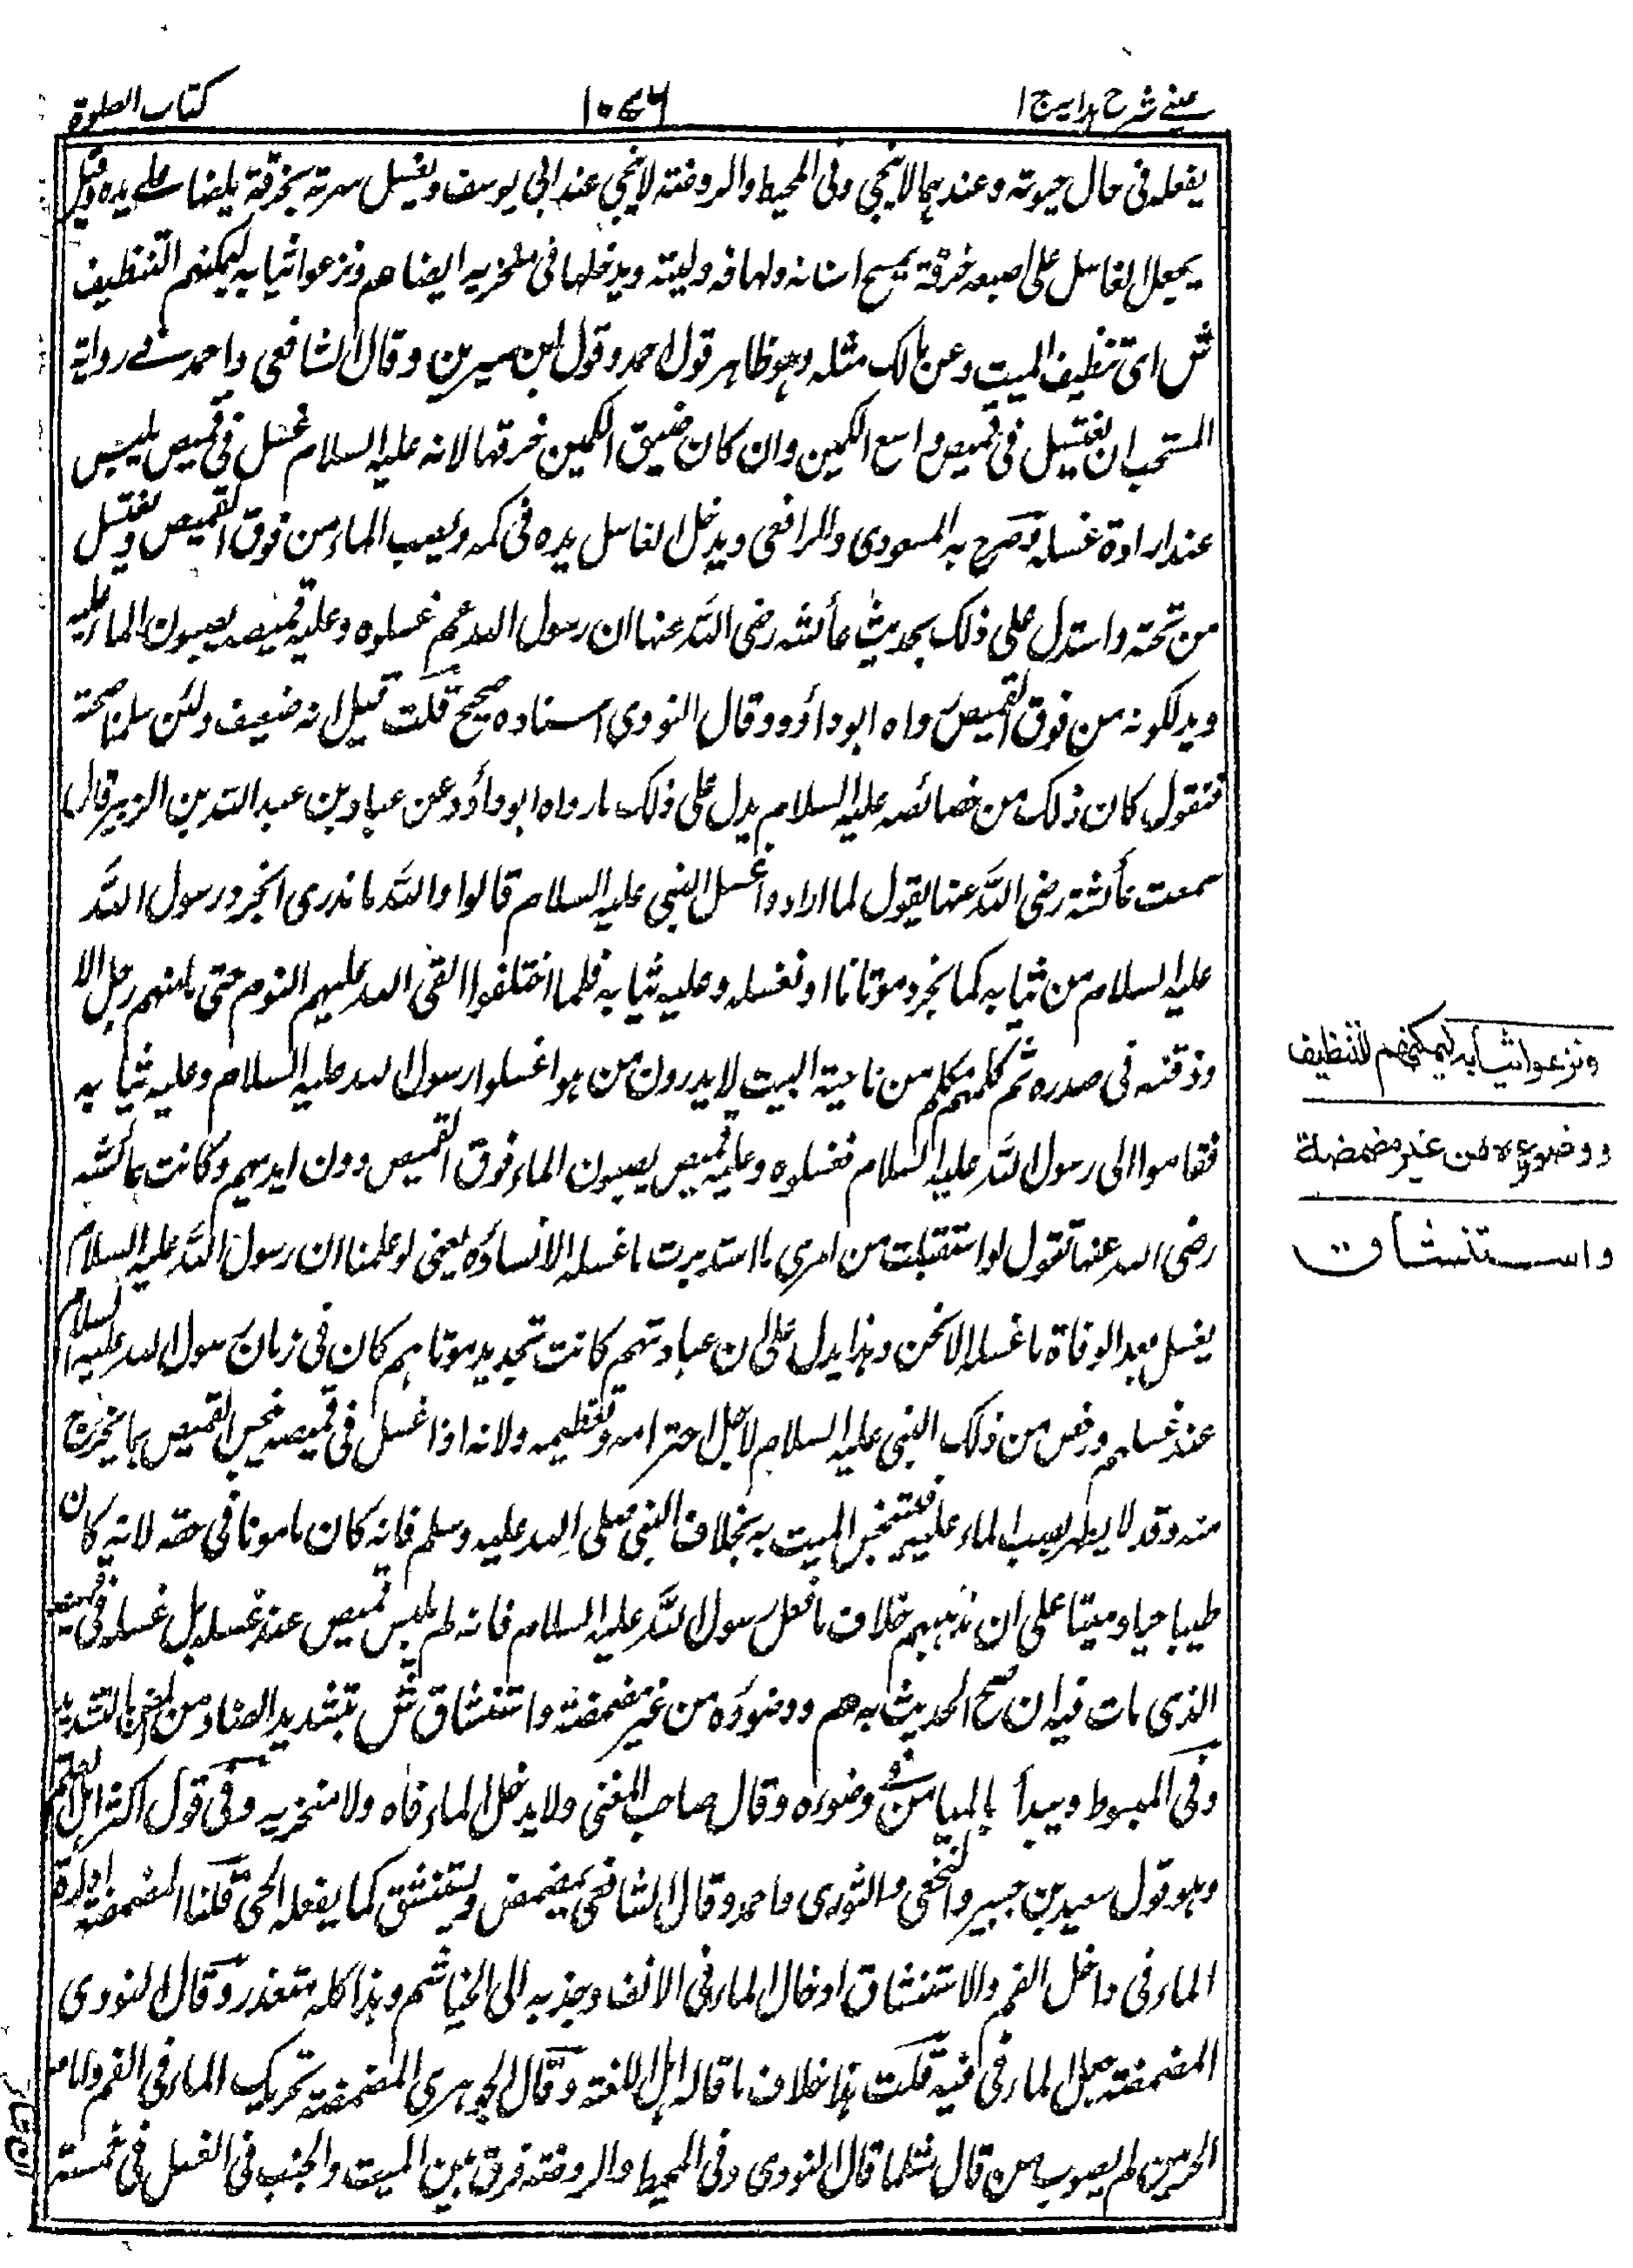 عینے شرح ہدایہ ج ١
١٠٤٦
كتاب الصلوة
يفعله فى حال حيوته وعندهما لا ينجى وفى المحيط والروضة لا ينجى عند ابى يوسف ويغسل سرته بخرقة يلفها على يده وقيل
يجعل الغاسل على اصبعه خرقة يمسح اسنانه ولهاته ولثته ويدخلها فى منخريه ايضا هم ونزعوا ثيابه ليمكنهم التنظيف
ش اى تنظيف الميت وعن مالك مثله وهو ظاهر قول احمد وقول ابن سيرين وقال الشافعى واحمد فے رواية
المستحب ان يغتسل فى قميص واسع الكمين وان كان ضيق الكمين خرقها لانه عليه السلام غسل فى قميص يلبس
عند ارادة غسله وصرح به المسعودى والرافعى ويدخل الغاسل يده فى كمه ويصب الماء من فوق القميص ويغتسل
من تحته واستدل على ذلك بحديث عائشة رضى الله عنها ان رسول الله عم غسلوه وعليه قميصه يصبون الماء عليه
ويدلكونه من فوق القميص رواه ابو داؤد وقال النووى اسناده صحيح قلت قيل انه ضعيف ولئن سلمنا صحته
فنقول كان ذلك من خصائصه عليه السلام يدل على ذلك ما رواه ابو داؤد عن عباد بن عبد الله بن الزبير قال
سمعت عائشة رضى الله عنها يقول لما ارادوا غسل النبى عليه السلام قالوا والله ما ندرى انجرد رسول الله
عليه السلام من ثيابه كما نجرد موتانا او نغسله وعليه ثيابه فلما اختلفوا القى الله عليهم النوم حتى ما منهم رجل الا
وذقنه فى صدره ثم كلمهم مكلم من ناحية البيت لا يدرون من هو اغسلوا رسول الله عليه السلام وعليه ثيابه
فقاموا الى رسول الله عليه السلام فغسلوه وعليه قميص يصبون الماء فوق القميص دون ايديهم وكانت عائشة
رضى الله عنها تقول لو استقبلت من امرى ما استدبرت ما غسله الا نساؤه يعنى لو علمنا ان رسول الله عليه السلام
يغسل بعد الوفاة ما غسله الا نحن وهذا يدل على ان عبادتهم كانت تجديد موتاهم كان فى زمان رسول الله عليه السلام
عند غسلهم وخص من ذلك النبى عليه السلام لاجل احترامه وتعظيمه ولانه اذا غسل فى قميصه نجس القميص بما يخرج
منه وقد لا يطهر بصب الماء عليه فيتنجس الميت به بخلاف النبى صلى الله عليه وسلم فانه كان مامونا فى حقه لانه كان
طيبا حيا وميتا على ان مذهبهم خلاف ما فعل رسول الله عليه السلام فانه لم يلبس قميص عند غسله بل غسلوه فى قميصه
الذى مات فيه ان صح الحديث به هم ووضوؤه من غير مضمضة واستنشاق ش بتشديد الضاد من بالتشديد
وفى المبسوط ويبدأ بالميامن فى وضوءه وقال صاحب المغنى ولا يدخل الماء فاه ولا منخريه وفى قول اكثر اهل العلم
وهو قول سعيد بن جبير والنخعى والثورى واحمد وقال الشافعى يمضمض ويستنشق كما يفعله الحى قلنا المضمضة ادارة
الماء فى داخل الفم والاستنشاق ادخال الماء فى الانف وجذبه الى الخياشم وهذا كله متعذر وقال النووى
المضمضة جعل الماء فى فيه قلت هذا خلاف ما قاله اهل اللغة وقال الجوهرى المضمضة تحريك الماء فى الفم وامام
الحرمين لم يصوب من قال مثلما قال النووى وفى المحيط والروضة فرق بين الميت والجنب فى الغسل فى خمسة
ونزعوا ثيابه ليمكنهم التنظيف
ووضوءه من غير مضمضة
واستنشاق